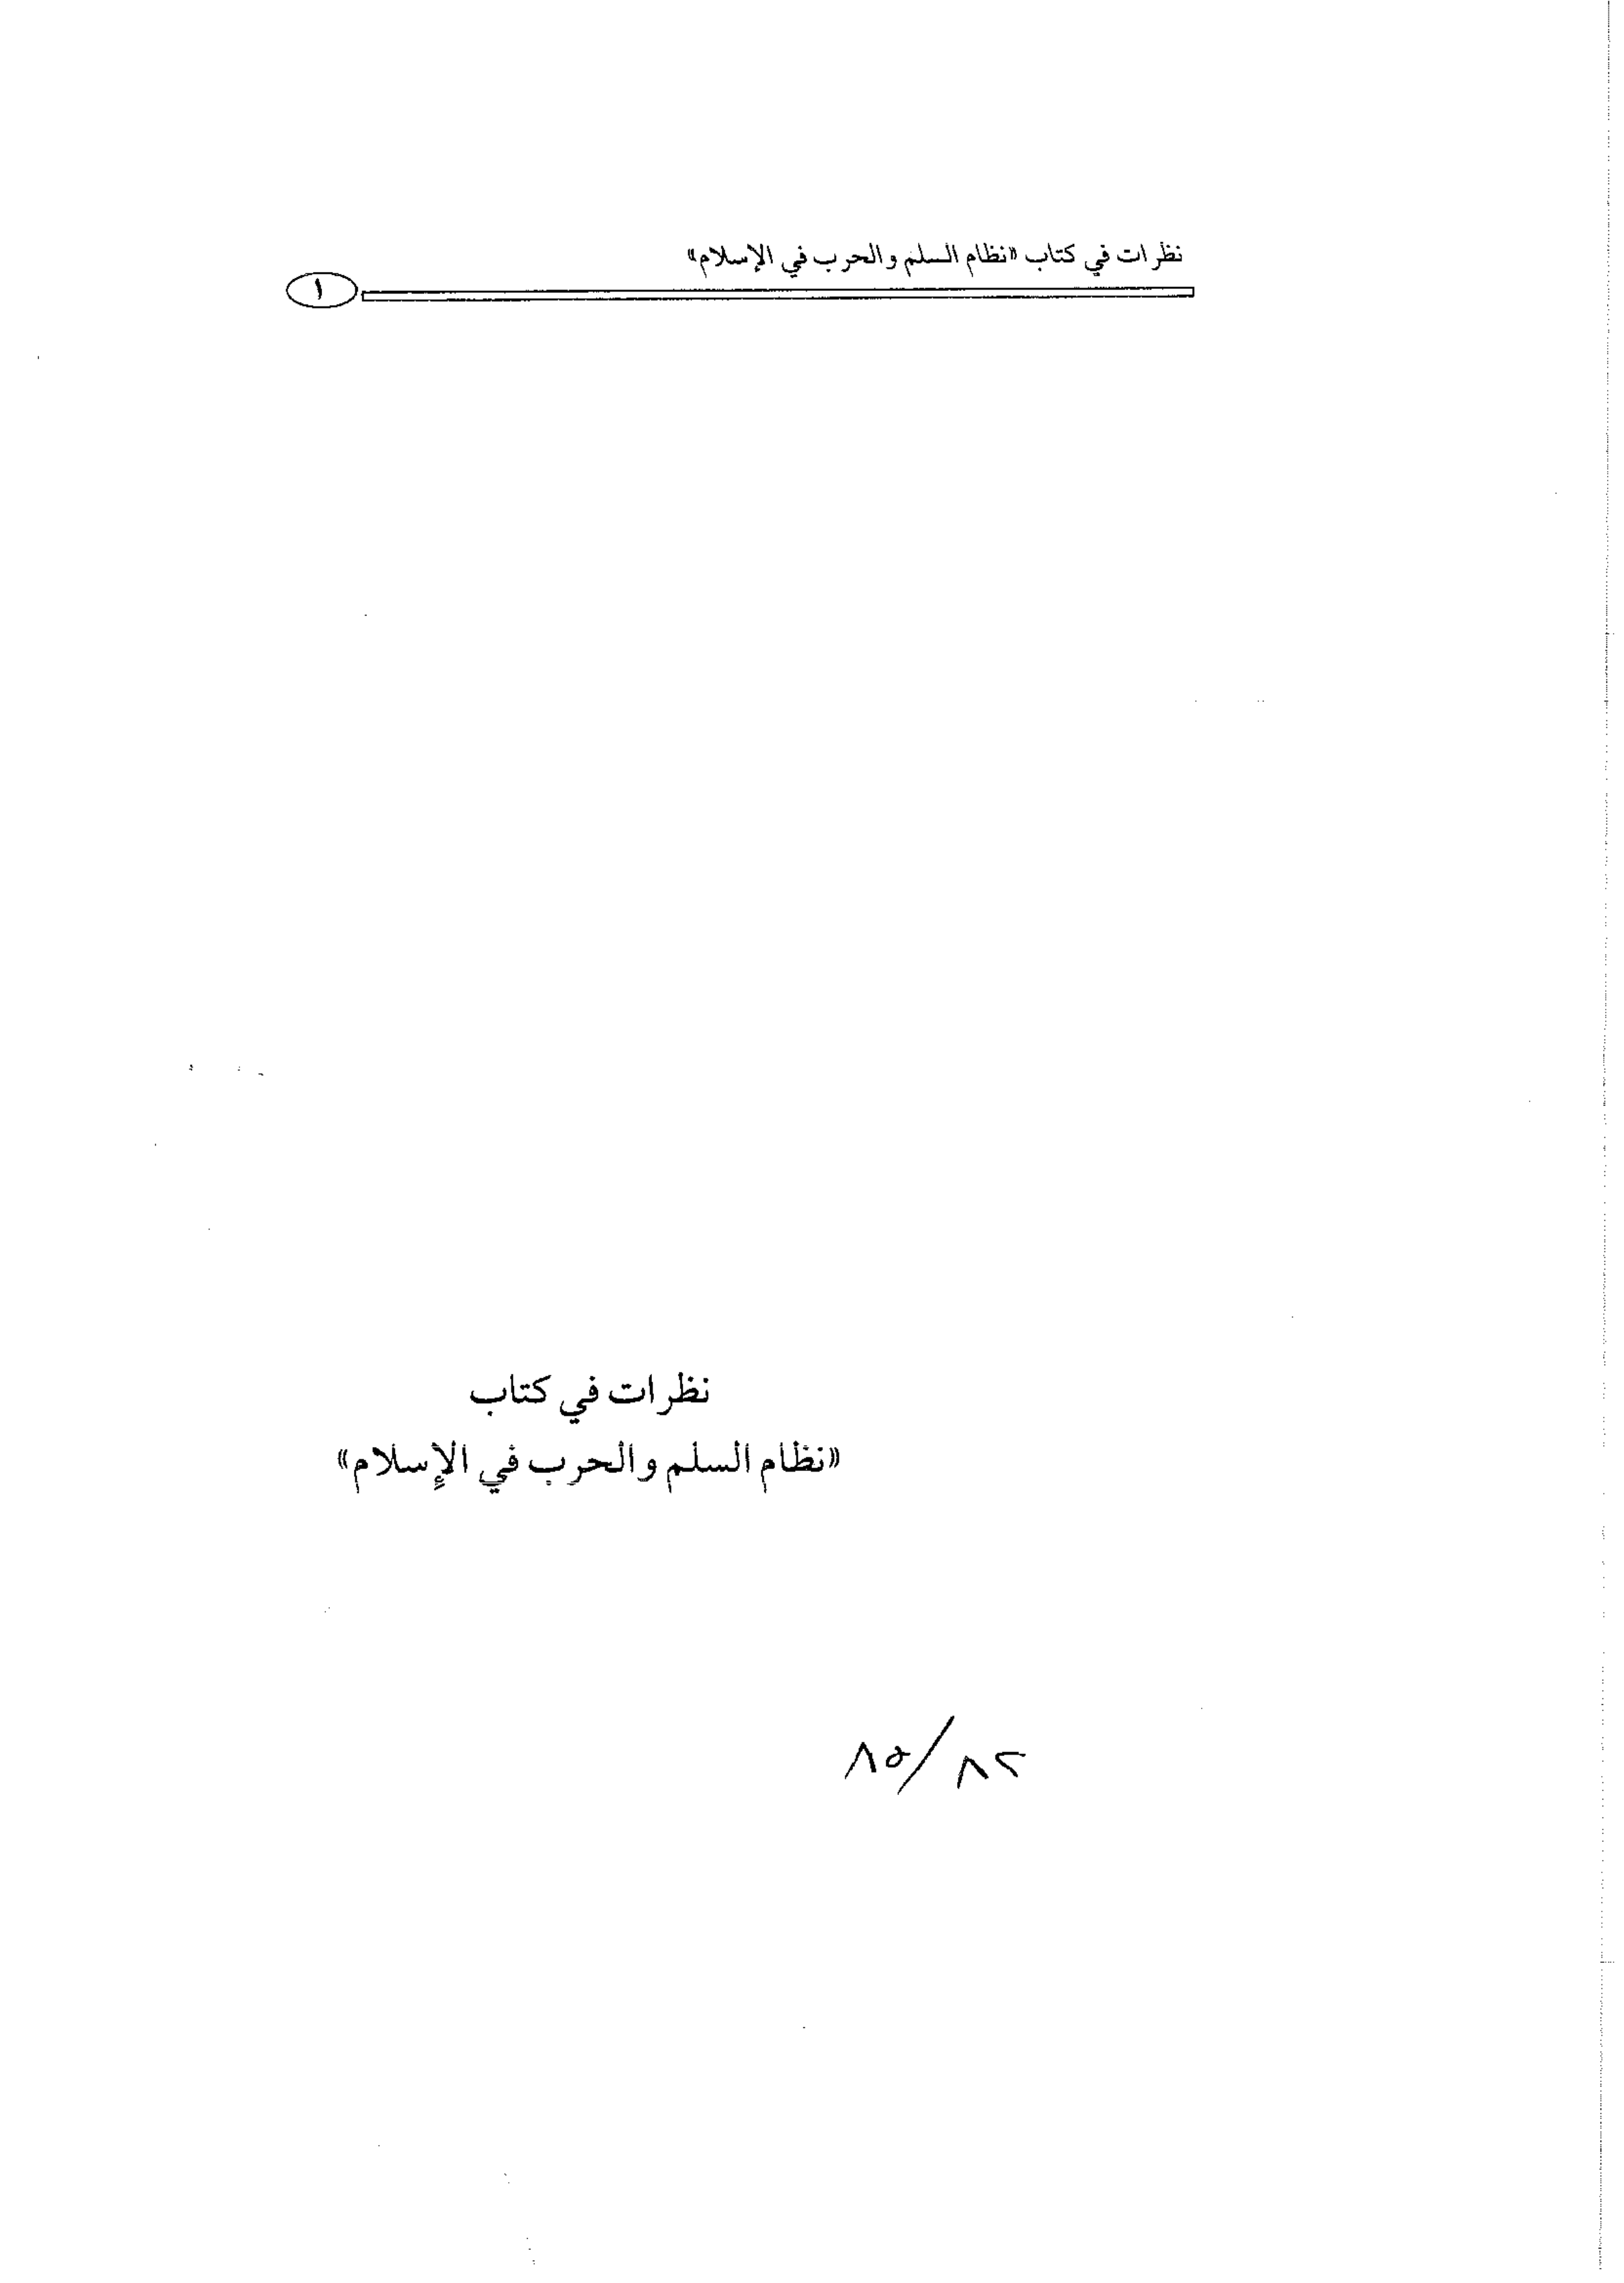 نظرات في كتاب «نظام السلم والحرب في الإسلام»
١
نظرات في كتاب
«نظام السلم والحرب في الإسلام»
٨٥/٨٢